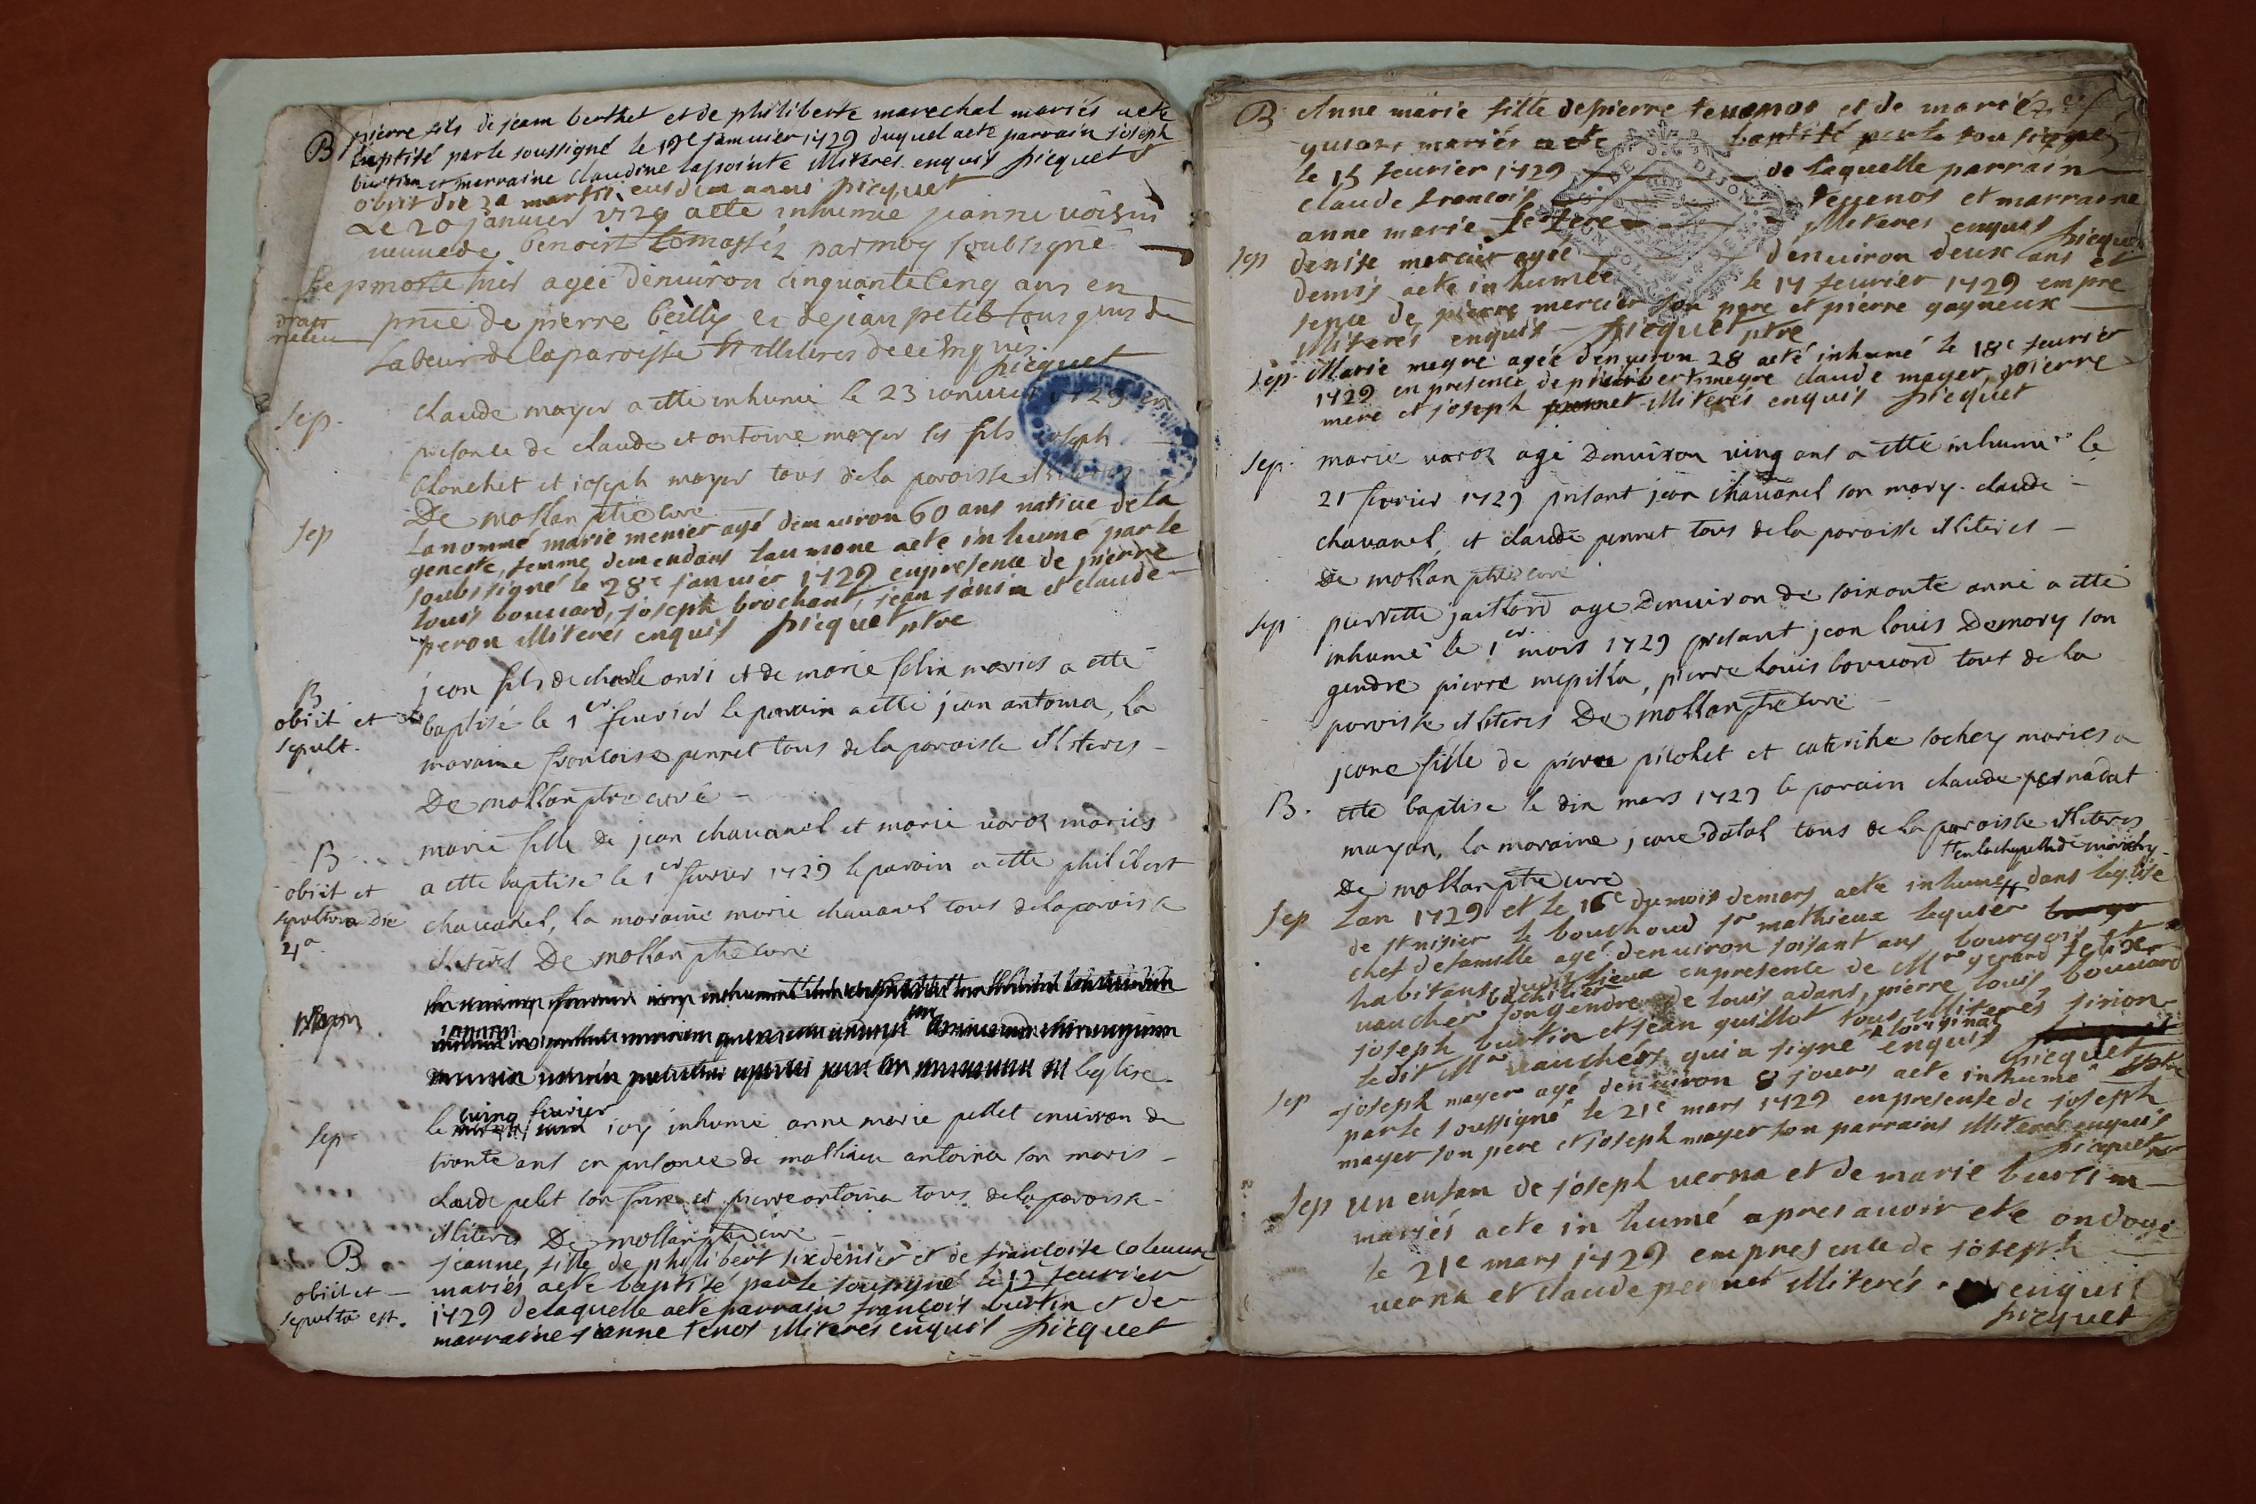 B pierre fils de jean berthet et de philiberte marechal mariés aeté
baptisé par le soussigné le 19e januier 1729 duquel aeté parrain joseph
burtin et marraine claudine lapointe illiteres enquis picquet
obiit die 2a martii eusdem anni picquet
Le 20 januier 1729 a ette inhumée jeanne uoisin
ueuuede benoist par moy soubsigné
agée denuiron cinquante cinq ans en
pnce de pierre et de jean petit tous
Labeur de laparoisse illiteres de ce enquis
picquet
Sep. claude mayer a etté inhumé le 23 ianuier 1729 en
presance de claude et antoine mayer ses fils joseph
blonchet et joseph mayer tous de la paroisse illiteres
De mollan ptre curé
Sep Lanommé marie menier agé denuiron 60 ans natiue de la
geneste, femme demendans laumone aeté inhumé par le
soubsigné le 28e januier 1729 enpresence de pierre
louis bouuard, joseph brochant, jean janin et claude
peron illiterés enquis picquet ptre
B jean fils de charle anri et de marie felix mariés a etté
obiit et baptisé le 1er feurier le parain a etté jean antoina, la
sepult. maraine francoise pernet tous de la paroisse illiteres
De mollan ptre curé
B. marie fille de jean chauanel et marie uaroz mariés
obiit et a etté baptisé le 1er feurier 1729 le parain a etté philibert
sepulta die chauanel, la maraine marie chauanel tous de la paroisse
4a illiteres De mollan ptre curé
leglise.
cuinq feurier
Sep le iay inhumé anne marie pellet enuiron de
trante ans en presance de mathieu antoina son maris
claude pelet son frere et pierre antoina tous de la paroisse
illiteres De mollan ptre curé
B jeanne, fille de philibert sixdenier et de francoise coleuure
obiit et mariés aeté baptisé par le sousigné le 12e feurier
sepulta est. 1729 delaquelle aeté parrain francois burtin et de
marraine jeanne tenos illiterés enquis picquet
B Anne marie fille de pierre teuenos et de marie
guioz mariés aeté baptisé par le soussigné
le 15 feurier 1729 de laquelle parrain
claude francois teuenos et marraine
anne marie illiteres enquis picquet
Sep denise mercier agée denuiron deux ans et
demis aeté inhumée le 14 feurier 1729 enpre
sence de pierre mercier son pere et pierre gagneux
illiterés enquis picquet ptre
Sep. Marie megre agée denuiron 28 aeté inhumé le 18e feurier
1729 en presence de philibert megre claude mayer, pierre
mere et joseph pernet illiterés enquis picquet
Sep. marie uaroz agé denuiron uing ans a etté inhumé le
21 feurier 1729 present jean chauanel son mary claude
chauanel, et claude pernet tous de la paroisse illiteres
De mollan ptre curé
Sep. pierrette jaillard agé denuiron de soixante anné a etté
inhumé le 1er mars 1729 present jean louis Demory son
gendre pierre mepilla, pierre louis bouuard tout de la
paroisse illiteres De mollan ptre curé
jeane fille de pierre pilohet et caterine sochey mariés a
B. etté baptisé le dix mars 1729 le parain claude pernadat
mayan, la maraine jeane dalal tous de la paroisse illiteres
De mollan ptre curé en la chapelle de
Sep Lan 1729 et le 16e dumois demars aeté inhumé dans leglise
de st nisier le bouchoud sr mathieux lequier
chef defamille agé denuiron soisant ans bourgois et
habitans dudit lieux enpresence de Mr gerard felix
uaucher son gendre de louis adans, pierre louis bouuard
joseph burtin et jean guillot tous illiterés sinon
ledit Mr uauchers qui a signé a loriginal enquis
picquet ptre
Sep joseph mayer agé denuiron 8 jours aeté inhumé
par le soussigné le 21e mars 1729 enpresense de joseph
mayer son pere et joseph mayer son parrains illiteres enquis
picquet ptre
Sep un enfan de joseph uerna et de marie burtin
mariés aeté inhumé apres auoir eté ondoyé
le 21e mars 1729 enpresence de joseph
uerna et claude pernet illiterés enquis
picquet